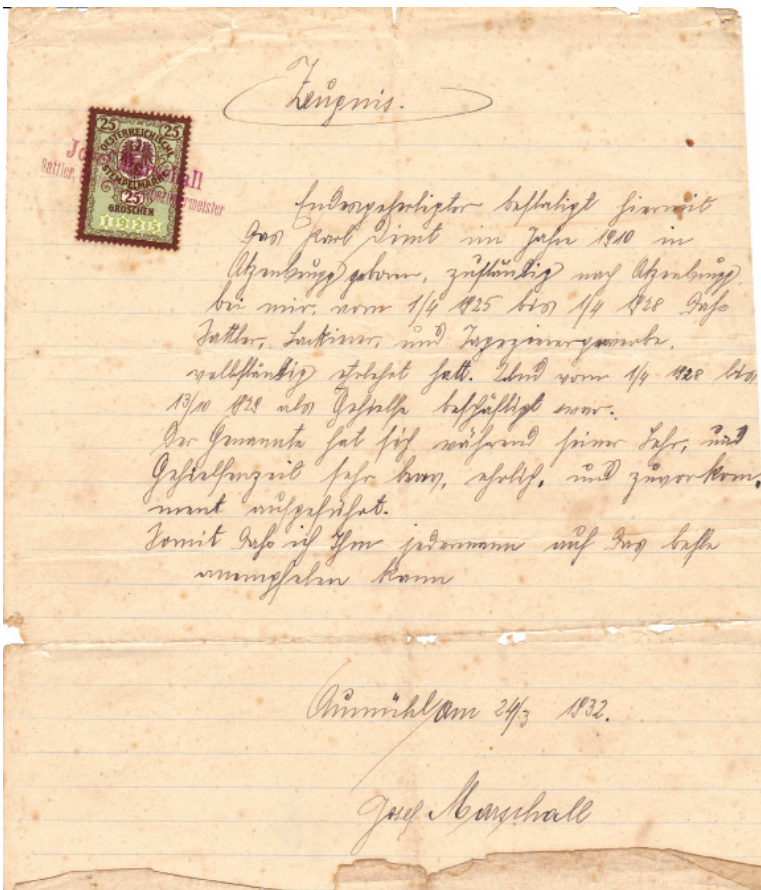 Zeugnis.
25 25
OESTERREICHISCHE
STEMPELMARKE
25
GROSCHEN
1925
Jo all
Sattler, meister
Endesgefertigter bestatigt hiermit
das Karl Dimt im Jahre 1910 in
Atzenbrugg geboren, zuständig nach Atzenbrugg
bei mir, vom 1/4 1925 bis 1/4 1928 dahs
Sattler, Lackierer, und Tapeziерergewerbe.
vollständig erlehrt hatt. Und vom 1/4 1928 bis
13/10 1928 als Gehielfe beschäftigt war.
Der Genannte hat sich während seiner Lehr, und
Gehielfenzeit sehr brav, ehrlich, und zuvorkom,
ment aufgeführt.
Somit dahs ich Ihm jedermann auf das beste
anempfelen kann
Aumühl am 24/3 1932.
Josef Marschall